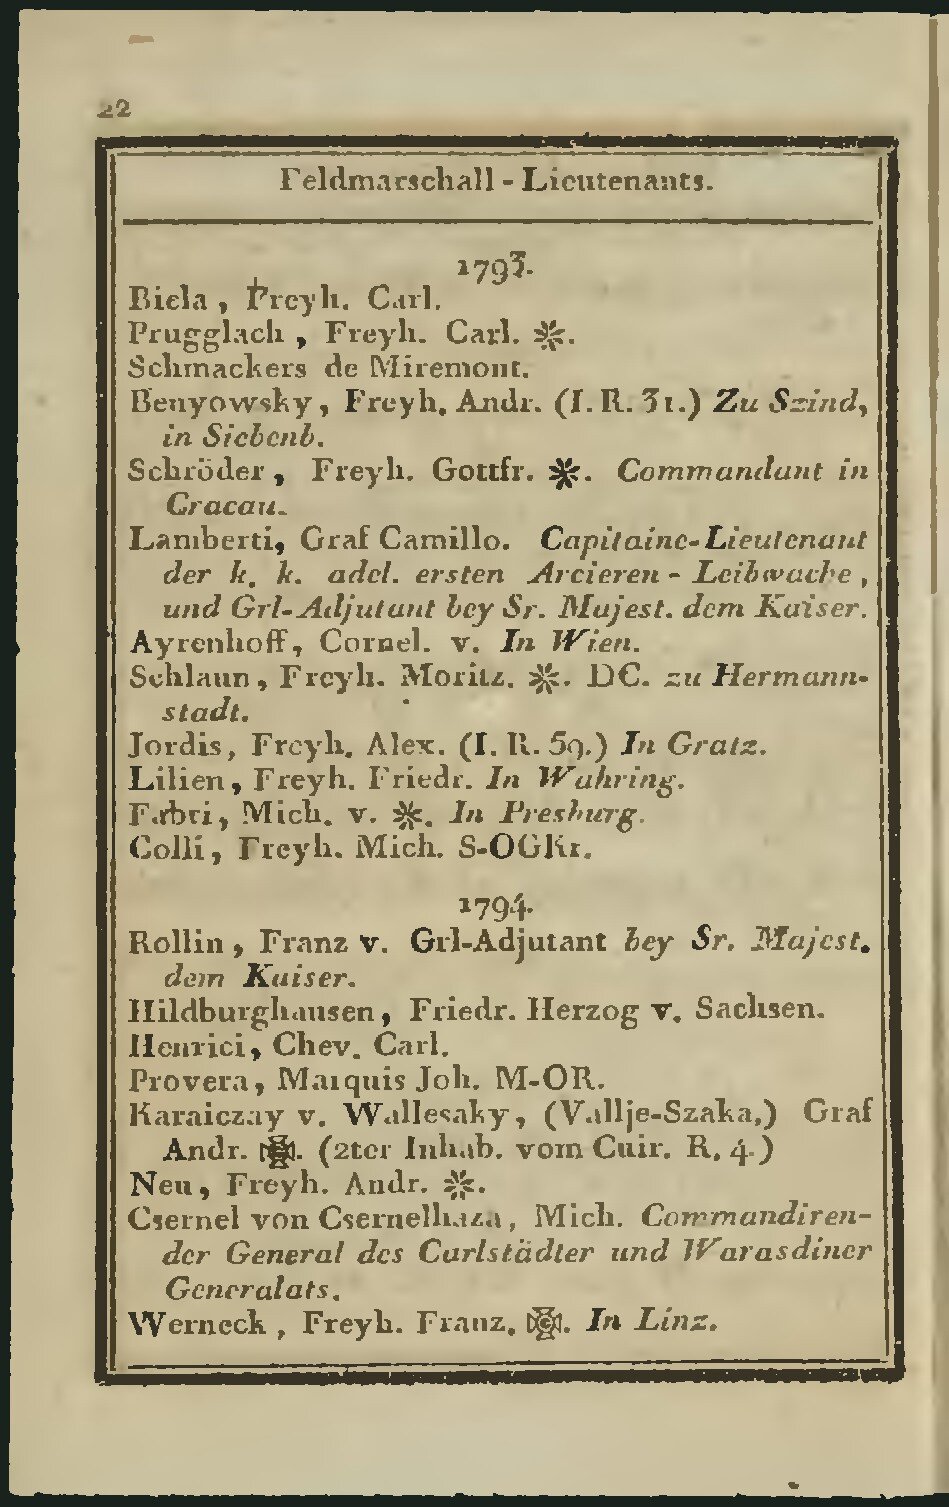 22
Feldmarschall-Lieutenants.
1793.
Biela, Freyh. Carl.
Prugglach, Freyh. Carl. ❋.
Schmackers de Miremont.
Benyowsky, Freyh. Andr. (I. R. 31.) Zu Szind,
in Siebenb.
Schröder, Freyh. Gottfr. ❋. Commandant in
Cracau.
Lamberti, Graf Camillo. Capitaine-Lieutenant
der k. k. adel. ersten Arcieren-Leibwache,
und Grl-Adjutant bey Sr. Majest. dem Kaiser.
Ayrenhoff, Cornel. v. In Wien.
Schlaun, Freyh. Moritz. ❋. DC. zu Hermann-
stadt.
Jordis, Freyh. Alex. (I. R. 59.) In Gratz.
Lilien, Freyh. Friedr. In Wahring.
Fabri, Mich. v. ❋. In Presburg.
Colli, Freyh. Mich. S-OGKr.
1794.
Rollin, Franz v. Grl-Adjutant bey Sr. Majest.
dem Kaiser.
Hildburghausen, Friedr. Herzog v. Sachsen.
Henrici, Chev. Carl.
Provera, Marquis Joh. M-OR.
Karaiczay v. Wallesaky, (Vallje-Szaka,) Graf
Andr. ✠. (2ter Inhab. vom Cuir. R. 4.)
Neu, Freyh. Andr. ❋.
Csernel von Csernelhaza, Mich. Commandiren-
der General des Carlstädter und Warasdiner
Generalats.
Werneck, Freyh. Franz. ✠. In Linz.